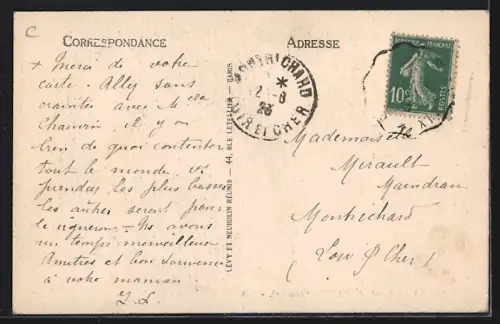 C
CORRESPONDANCE
ADRESSE
+ Merci de votre
carte. Allez sans
craintes avec M
Chauvin il y en
bien de quoi contenter
tout le monde.
prendres les plus basses
les autres seront pour
le vigneron = Ns avons
un temps merveilleux
Amitiés et bon souvenir
à votre maman
LÉVY ET NEURDEIN RÉUNIS - 44, RUE LETELLIER - PARIS
MONTRICHARD
*
12-8
23
LOIR ET CHER
RÉPUBLIQUE FRANÇAISE
10c
POSTES
Mademoiselle
Mirault
Montrichard
(Loir & Cher)